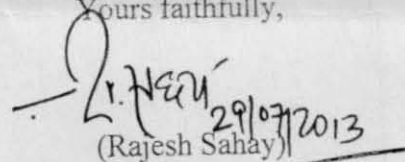 Yours faithfully,
29/07/2013
(Rajesh Sahay)